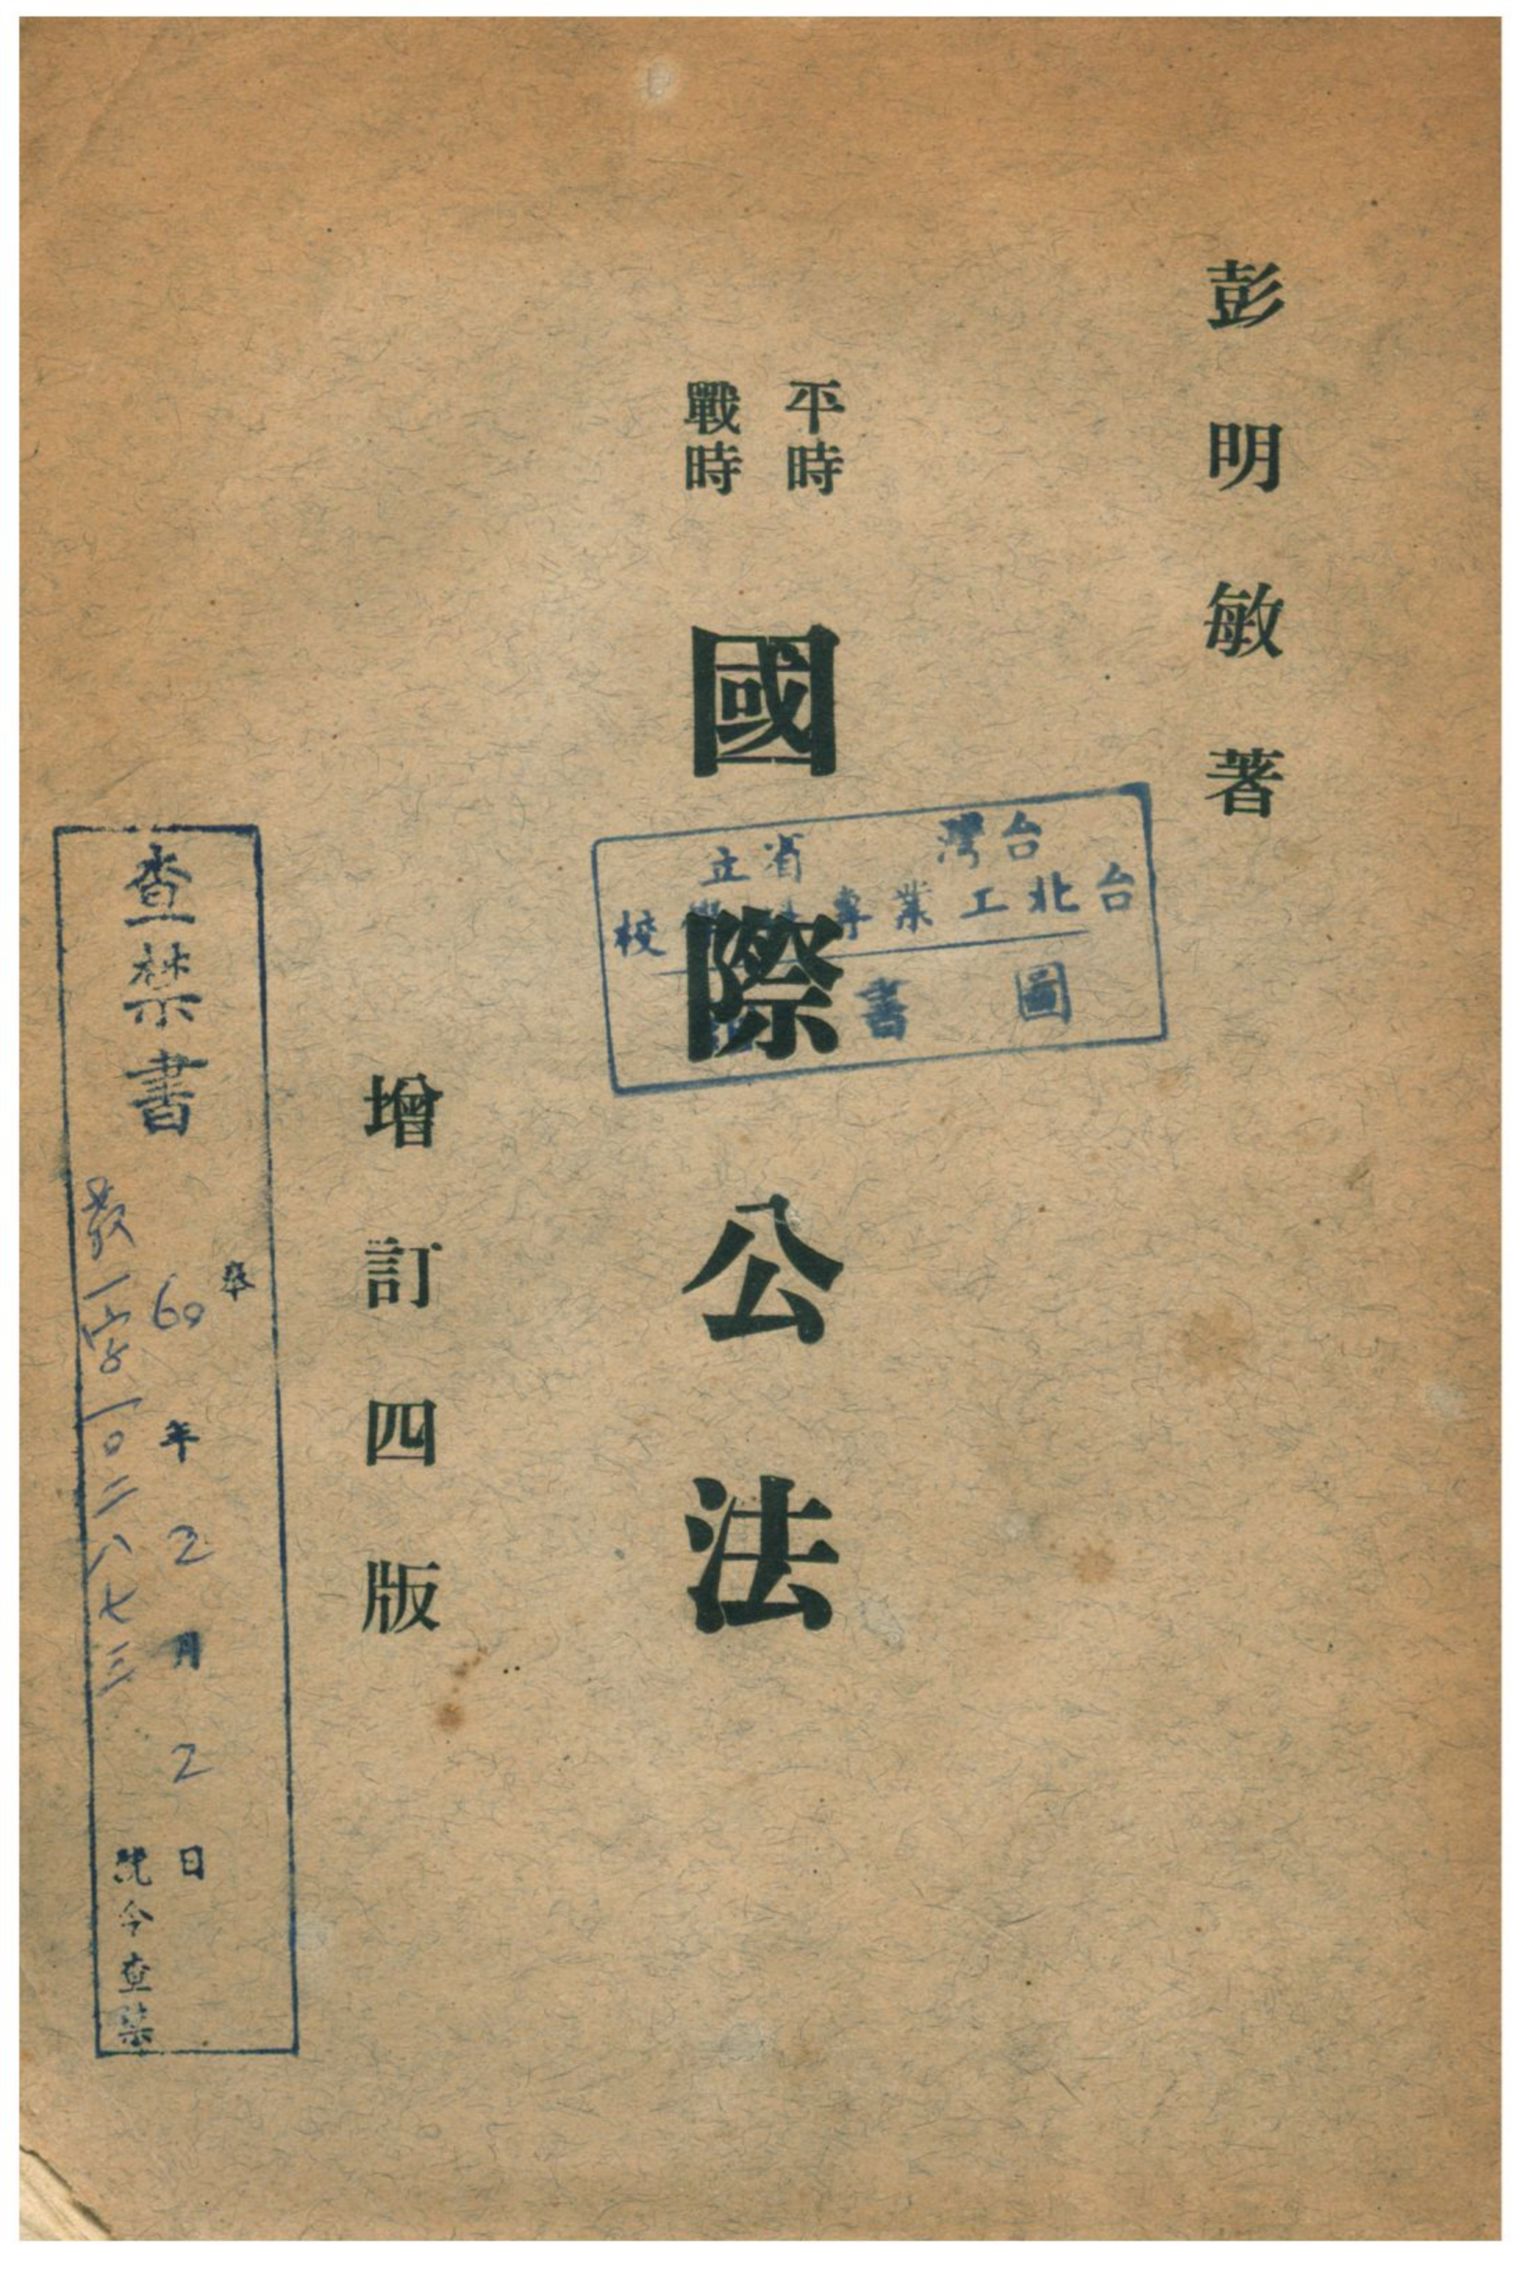 彭明敏著
平時
戰時
國際公法
增訂四版
台灣省立
台北工業專科學校
圖書
查禁書
奉
60年2月2日
教一字一〇二八七三
號令查禁